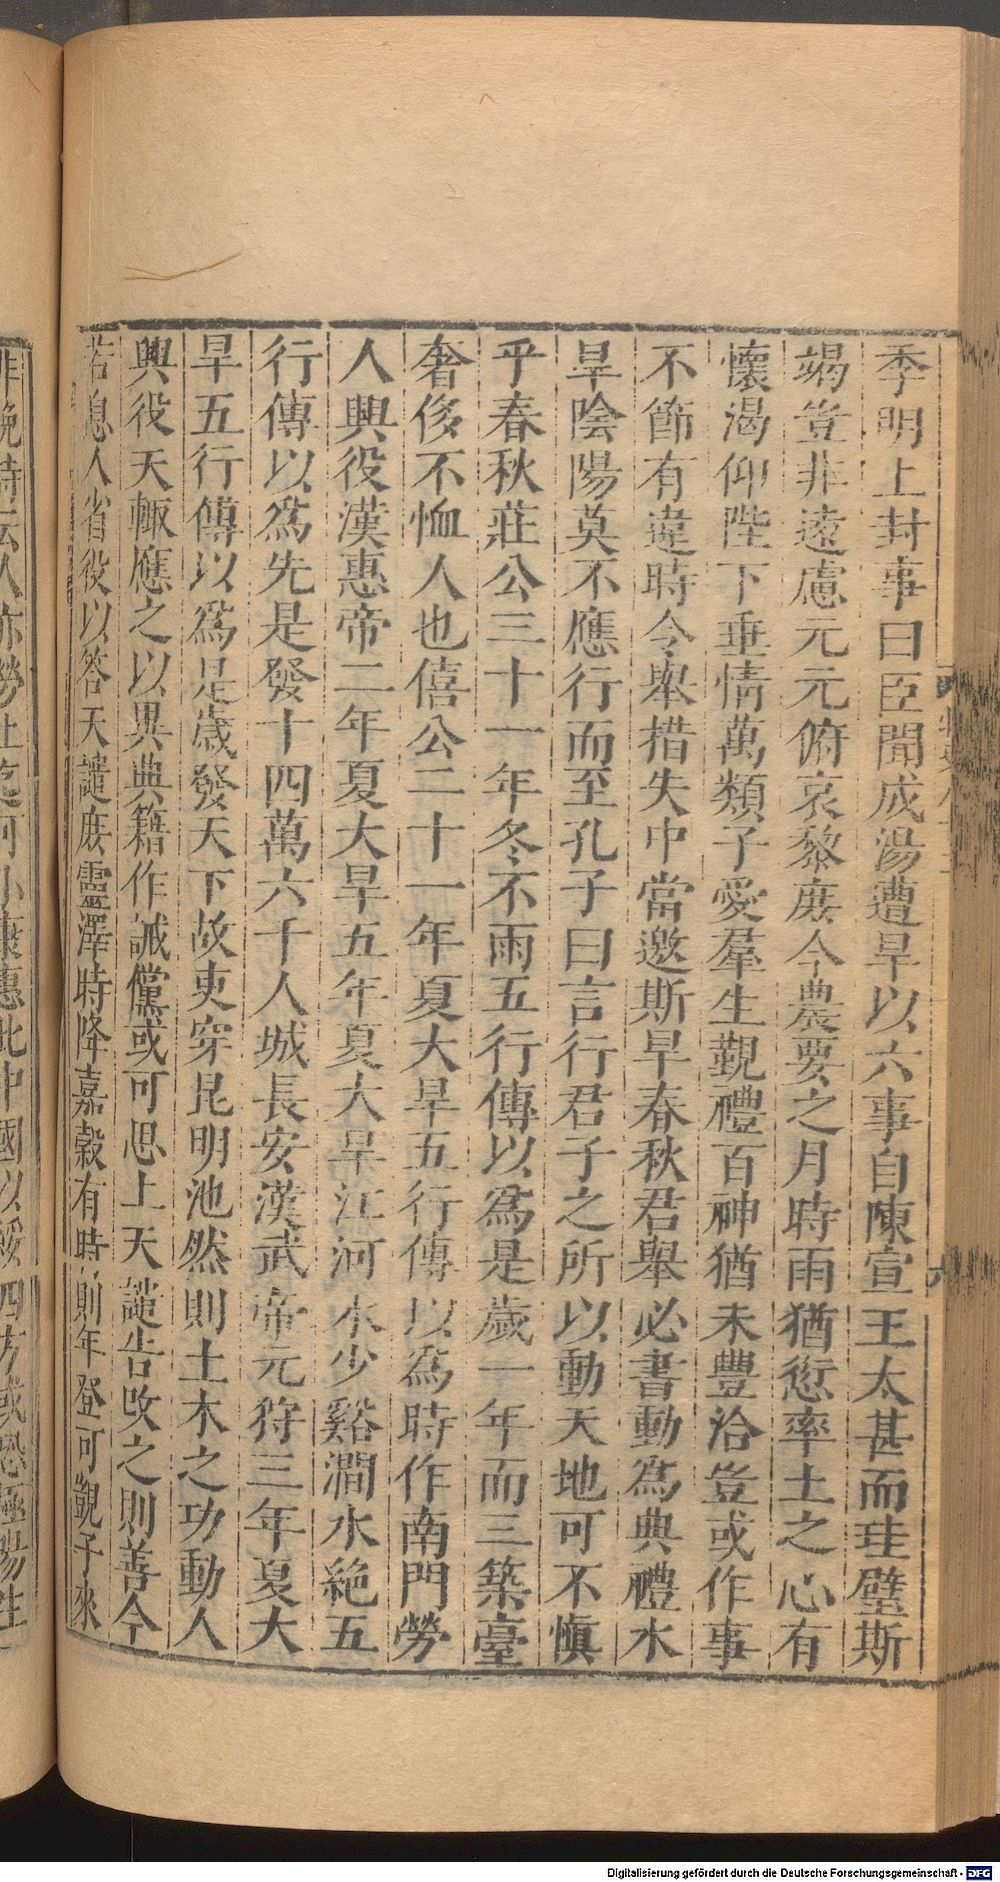 季明上封事曰臣聞成湯遭旱以六事自陳宣王太甚而珪璧斯
竭豈非遠慮元元俯哀黎庶今農要之月時雨猶愆率土之心有
懷渴仰陛下垂情萬類子愛羣生覲禮百神猶未豐洽豈或作事
不節有違時令舉措失中當邀斯旱春秋君舉必書動為典禮水
旱陰陽莫不應行而至孔子曰言行君子之所以動天地可不慎
乎春秋莊公三十一年冬不雨五行傳以為是歲一年而三築臺
奢侈不恤人也僖公二十一年夏大旱五行傳以為時作南門勞
人興役漢惠帝二年夏大旱五年夏大旱江河水少谿澗水絶五
行傳以為先是發十四萬六千人城長安漢武帝元狩三年夏大
旱五行傳以為是歲發天下故吏穿昆明池然則土木之功動人
興役天輒應之以異典籍作誡儻或可思上天譴告改之則善今
若息人省役以答天譴庶靈澤時降嘉穀有時則年登可覬子來
非晚詩云人亦勞止迄可小康惠此中國以綏四方或恐極陽生
Digitalisierung gefördert durch die Deutsche Forschungsgemeinschaft - DFG